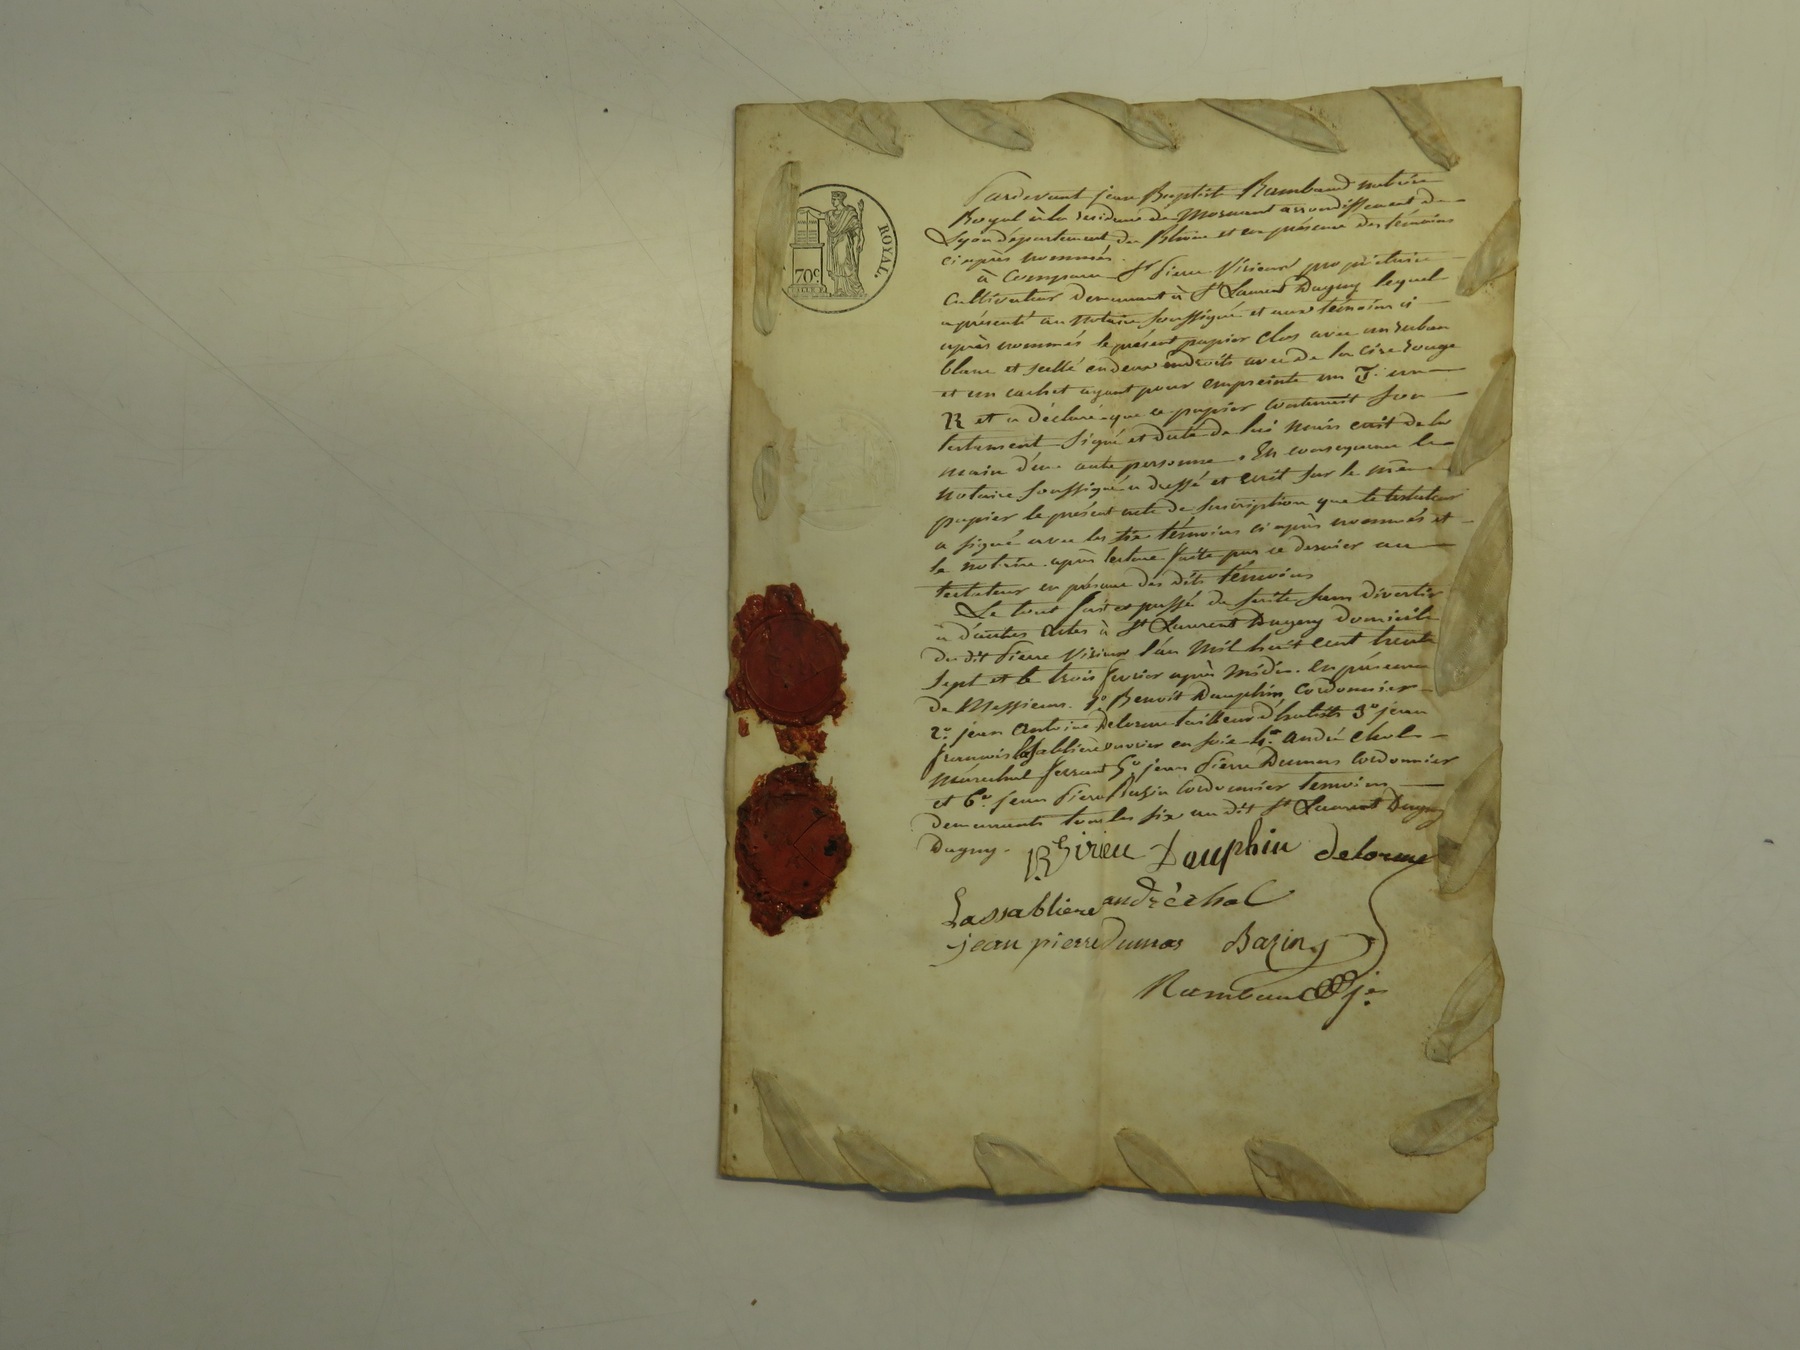 ROYAL.
70c
Pardevant jean Baptiste Rambaud notaire
Royal à la residence de Mornant arrondissement de
Lyon département du Rhône et en présence des témoins
ci après nommés.
à Comparu Sr Pierre Virieux propriétaire
Cultivateur demeurant à St Laurent Dagny lequel
a présenté au Notaire soussigné et aux témoins ci
après nommés le présent papier clos avec un ruban
blanc et scellé en deux endroits avec de la cire rouge
et un cachet ayant pour empreinte un J. un
R et a déclaré que ce papier contenait son
testament signé et daté de lui mais écrit de la
main d'une autre personne. En consequence le
notaire soussigné a dressé et écrit sur le même
papier le présent acte de suscription que le testateur
a signé avec les six témoins ci après nommés et
le notaire après lecture faite par ce dernier au
testateur en présence des dits témoins
Le tout fait et passé de suite sans divertir
à d'autres actes à St Laurent Dagny domicile
du dit Pierre Virieux l'an Mil huit cent trente
sept et le trois fevrier après midi. en présence
de Messieurs. 1o Benoit Dauphin, Cordonnier
2o jean Antoine Delorme tailleur d'habits 3o jean
françois Lassablière ouvrier en soie 4o andré Chol
Maréchal ferrant 5o jean Pierre Dumas Cordonnier
et 6o jean Pierre Bazin Cordonnier temoins
demeurants tous les six au dit St Laurent Dagny
Dagny.
Virieu Dauphin delorme
Lassabliere andré chol
jean pierre Dumas Bazin
Rambaud